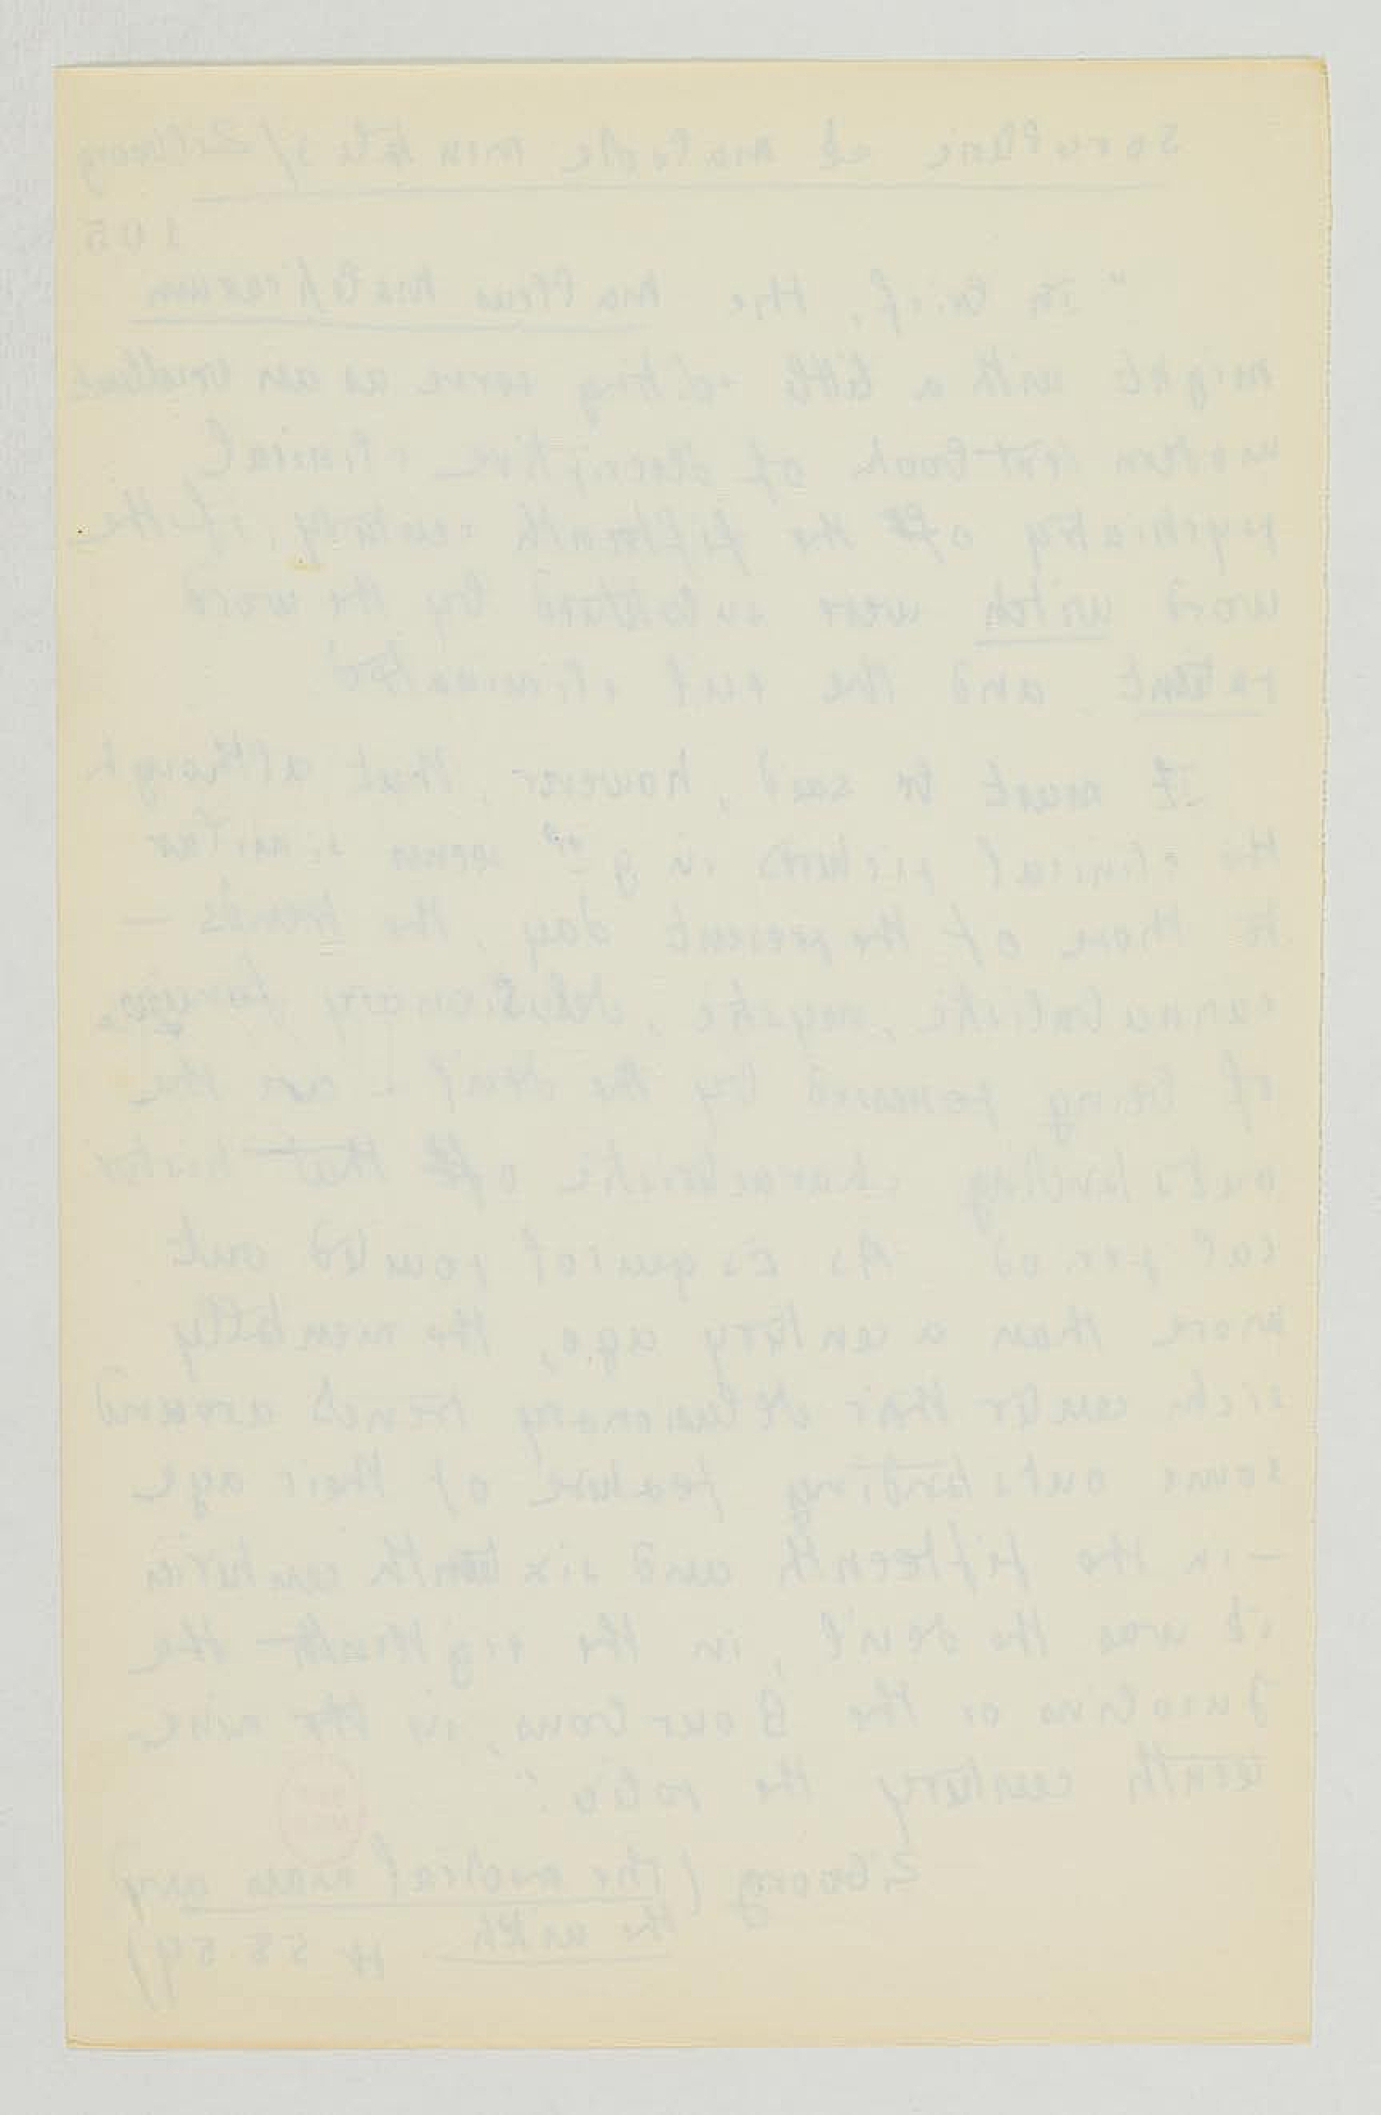 Sorcellerie et maladie mentale / Zilboorg
105
"In brief, the Malleus Maleficarum
might with a little editing serve as an excellent
modern text-book of descriptive clinical
psychiatry of the fifteenth century, if the
word witch were substituted by the word
patient and the devil eliminated
It must be said, however, that although
the clinical pictures in g al seem similar
to those of the present day, the trends —
cannibalistic, mystic, delusionary
of being possessed by the devil – are the
outstanding characteristic of that histori
cal period As Esquirol pointed out
more than a century ago, the mentally
sick center their delusionary trends around
some outstanding feature of their age
– in the fifteenth and sixteenth centuries
it was the devil, in the eighteenth the
or the Bourbons, in the nine
teenth century the police."
Zilboorg (The medical man and
the witch p 58 59)